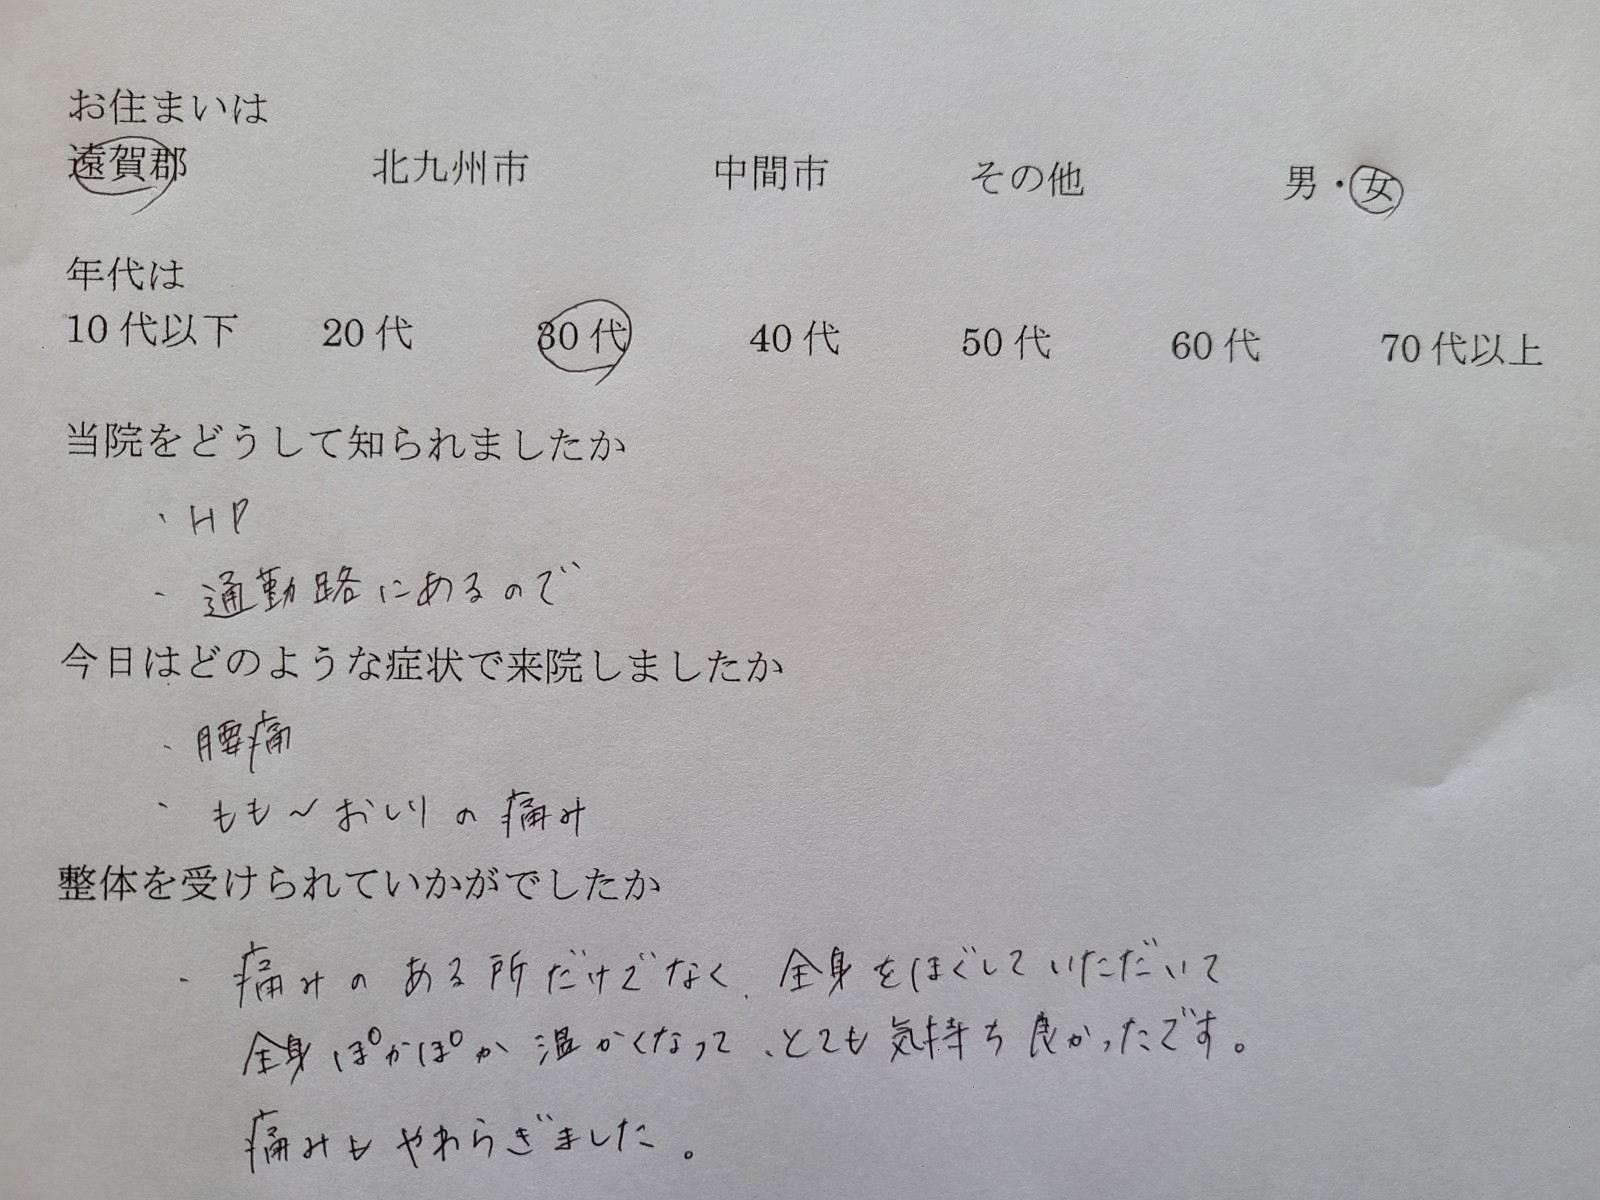 お住まいは
遠賀郡 北九州市 中間市 その他 男・女
年代は
10代以下 20代 30代 40代 50代 60代 70代以上
当院をどうして知られましたか
・HP
・通勤路にあるので
今日はどのような症状で来院しましたか
・腰痛
・もも～おしりの痛み
整体を受けられていかがでしたか
・痛みのある所だけでなく、全身をほぐしていただいて
全身ぽかぽか温かくなって、とても気持ち良かったです。
痛みもやわらぎました。